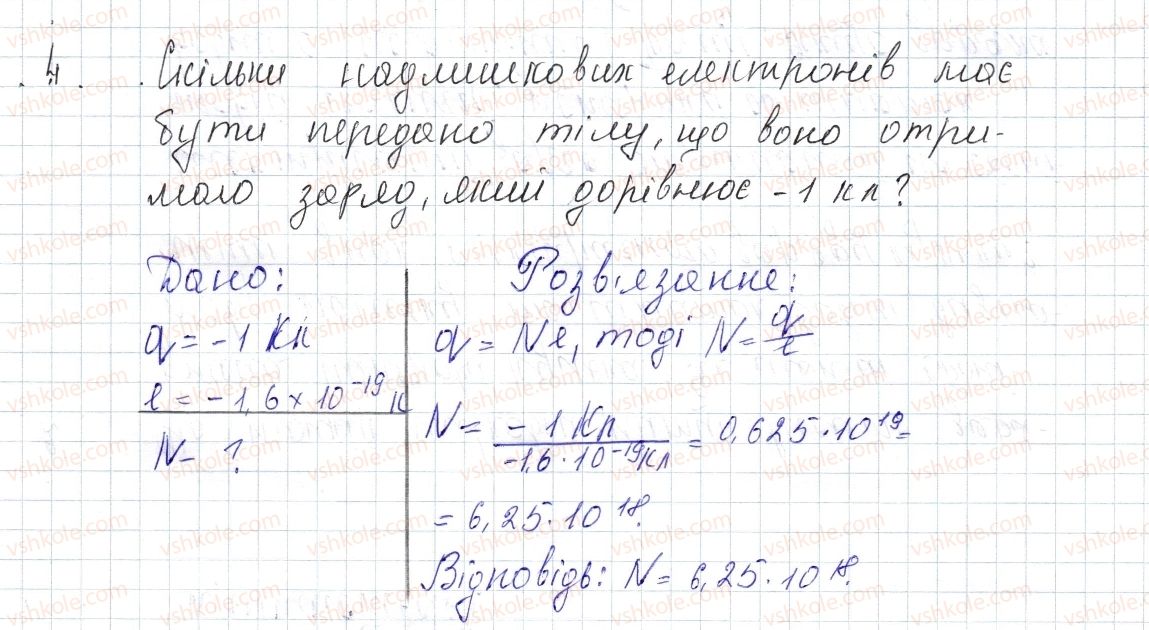 4. Скільки надлишкових електронів має
бути передано тілу, що воно отри-
мало заряд, який дорівнює -1 кл?
Дано:
q = -1 Кл
e = -1,6 × 10⁻¹⁹ К
N - ?
Розв'язання:
q = Ne, тоді N = q/e
N = -1 Кл / -1,6 · 10⁻¹⁹ Кл = 0,625 · 10¹⁹ =
= 6,25 · 10¹⁸.
Відповідь: N = 6,25 · 10¹⁸.
vshkole.com